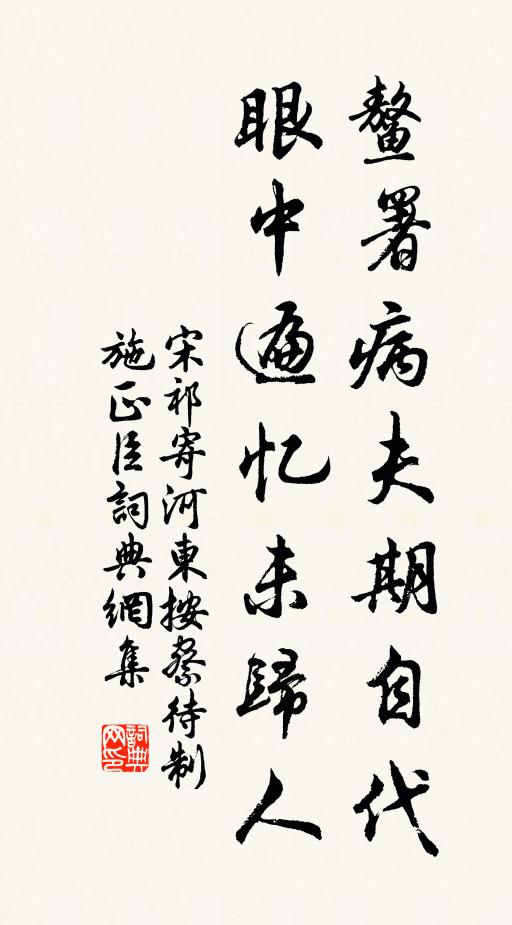 鳌署病夫期自代
眼中遍忆未歸人
宋祁寄河東按察待制
施正臣詞典網集
詞典网印